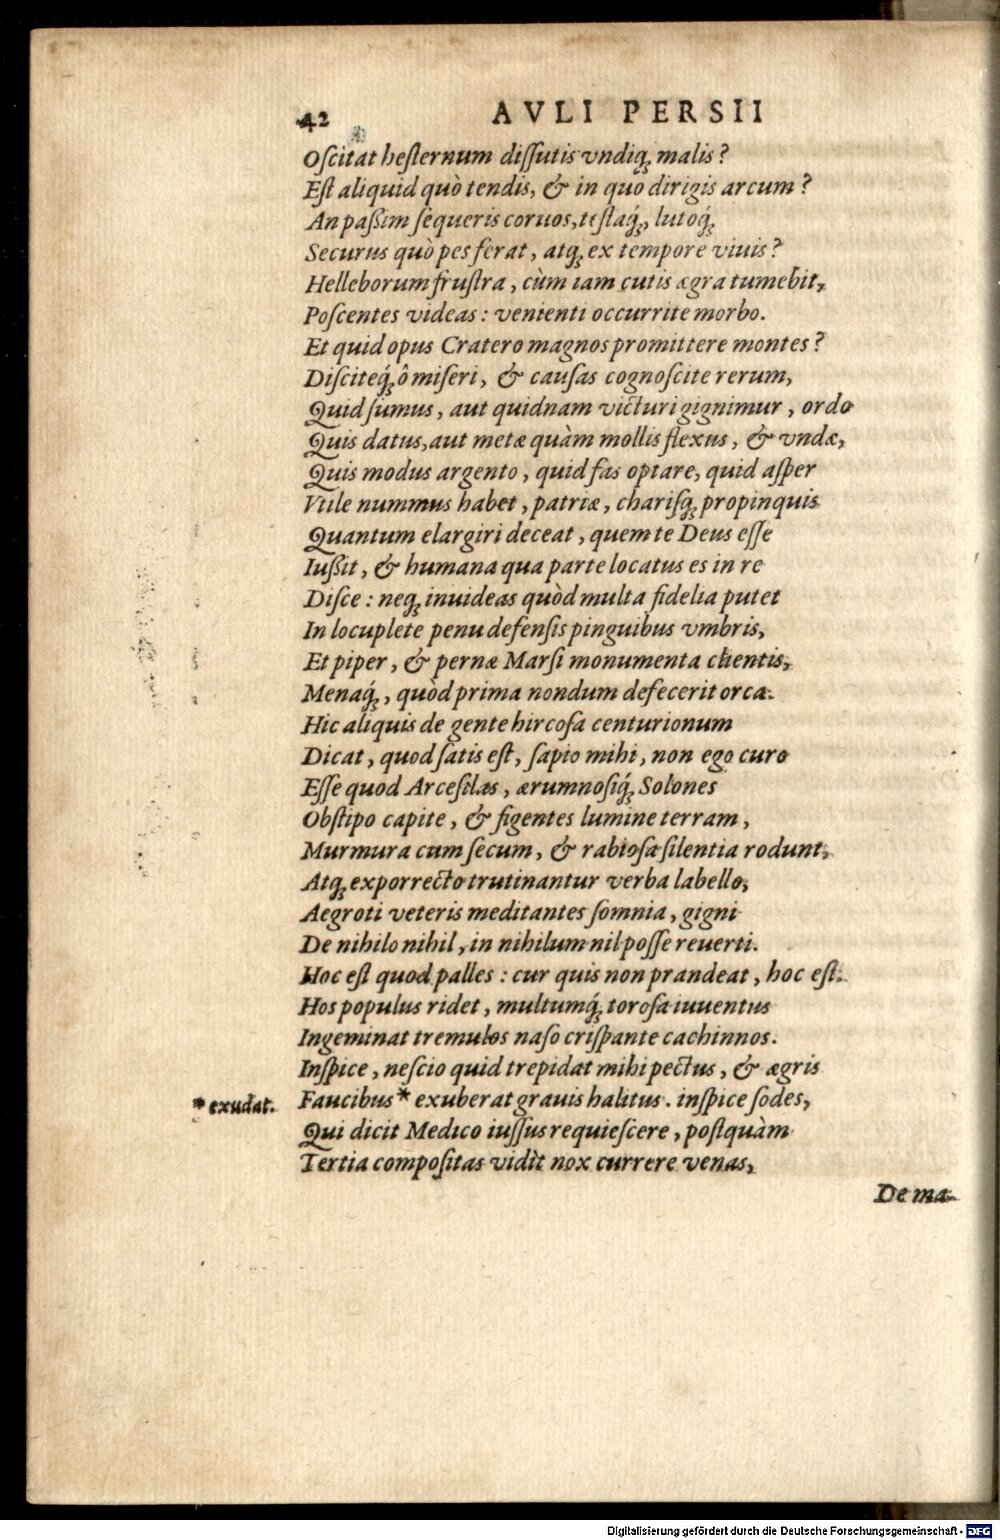 42 AVLI PERSII
Oſcitat heſternum diſſutis vndiq; malis?
Eſt aliquid quò tendis, & in quo dirigis arcum?
An paßim ſequeris coruos, teſtaq́;, lutoq́;
Securus quò pes ferat, atq; ex tempore viuis?
Helleborum fruſtra, cùm iam cutis ægra tumebit,
Poſcentes videas: venienti occurrite morbo.
Et quid opus Cratero magnos promittere montes?
Diſciteq́; ô miſeri, & cauſas cognoſcite rerum,
Quid ſumus, aut quidnam victuri gignimur, ordo
Quis datus, aut metæ quàm mollis flexus, & vndæ,
Quis modus argento, quid fas optare, quid aſper
Vtile nummus habet, patriæ, chariſq; propinquis
Quantum elargiri deceat, quem te Deus eſſe
Iußit, & humana qua parte locatus es in re
Diſce: neq; inuideas quòd multa fidelia putet
In locuplete penu defenſis pinguibus vmbris,
Et piper, & pernæ Marſi monumenta clientis,
Menaq́;, quòd prima nondum defecerit orca.
Hic aliquis de gente hircoſa centurionum
Dicat, quod ſatis eſt, ſapio mihi, non ego curo
Eſſe quod Arceſilas, ærumnoſiq́; Solones
Obſtipo capite, & figentes lumine terram,
Murmura cum ſecum, & rabioſa ſilentia rodunt,
Atq; exporrecto trutinantur verba labello,
Aegroti veteris meditantes ſomnia, gigni
De nihilo nihil, in nihilum nil poſſe reuerti.
Hoc eſt quod palles: cur quis non prandeat, hoc eſt.
Hos populus ridet, multumq́; toroſa iuuentus
Ingeminat tremulos naſo criſpante cachinnos.
Inſpice, neſcio quid trepidat mihi pectus, & ægris
* exudat. Faucibus * exuberat grauis halitus. inſpice ſodes,
Qui dicit Medico iuſſus requieſcere, poſtquàm
Tertia compoſitas vidìt nox currere venas,
De ma-
Digitalisierung gefördert durch die Deutsche Forschungsgemeinschaft - DFG